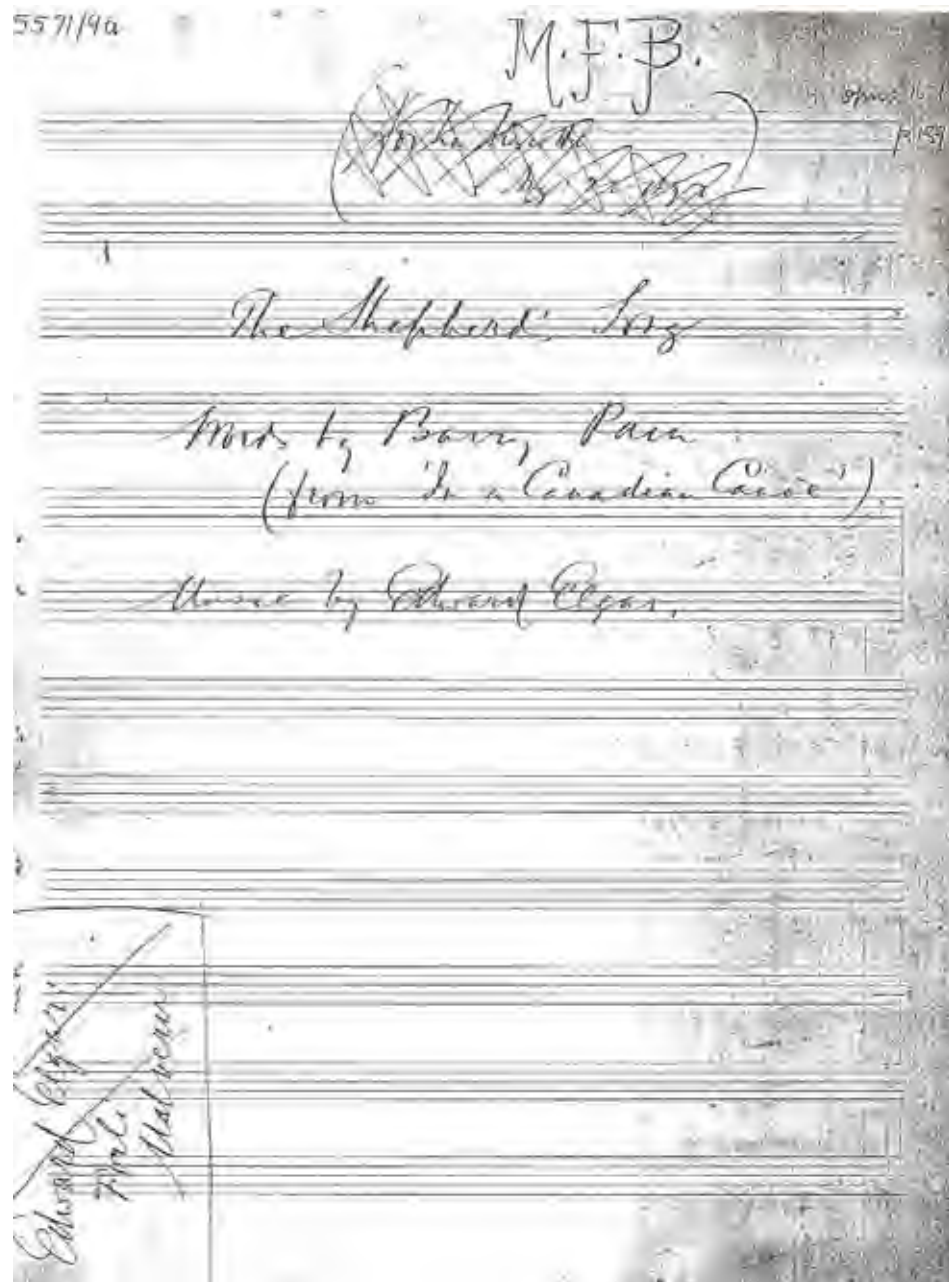 5571/9a
M.F.B.
opus 16 1
p 159
The Shepherd's Song
Words by Barry Pain.
(from 'In a Canadian Canoe').
Music by Edward Elgar.
Edward Elgar
Forli
Malvern